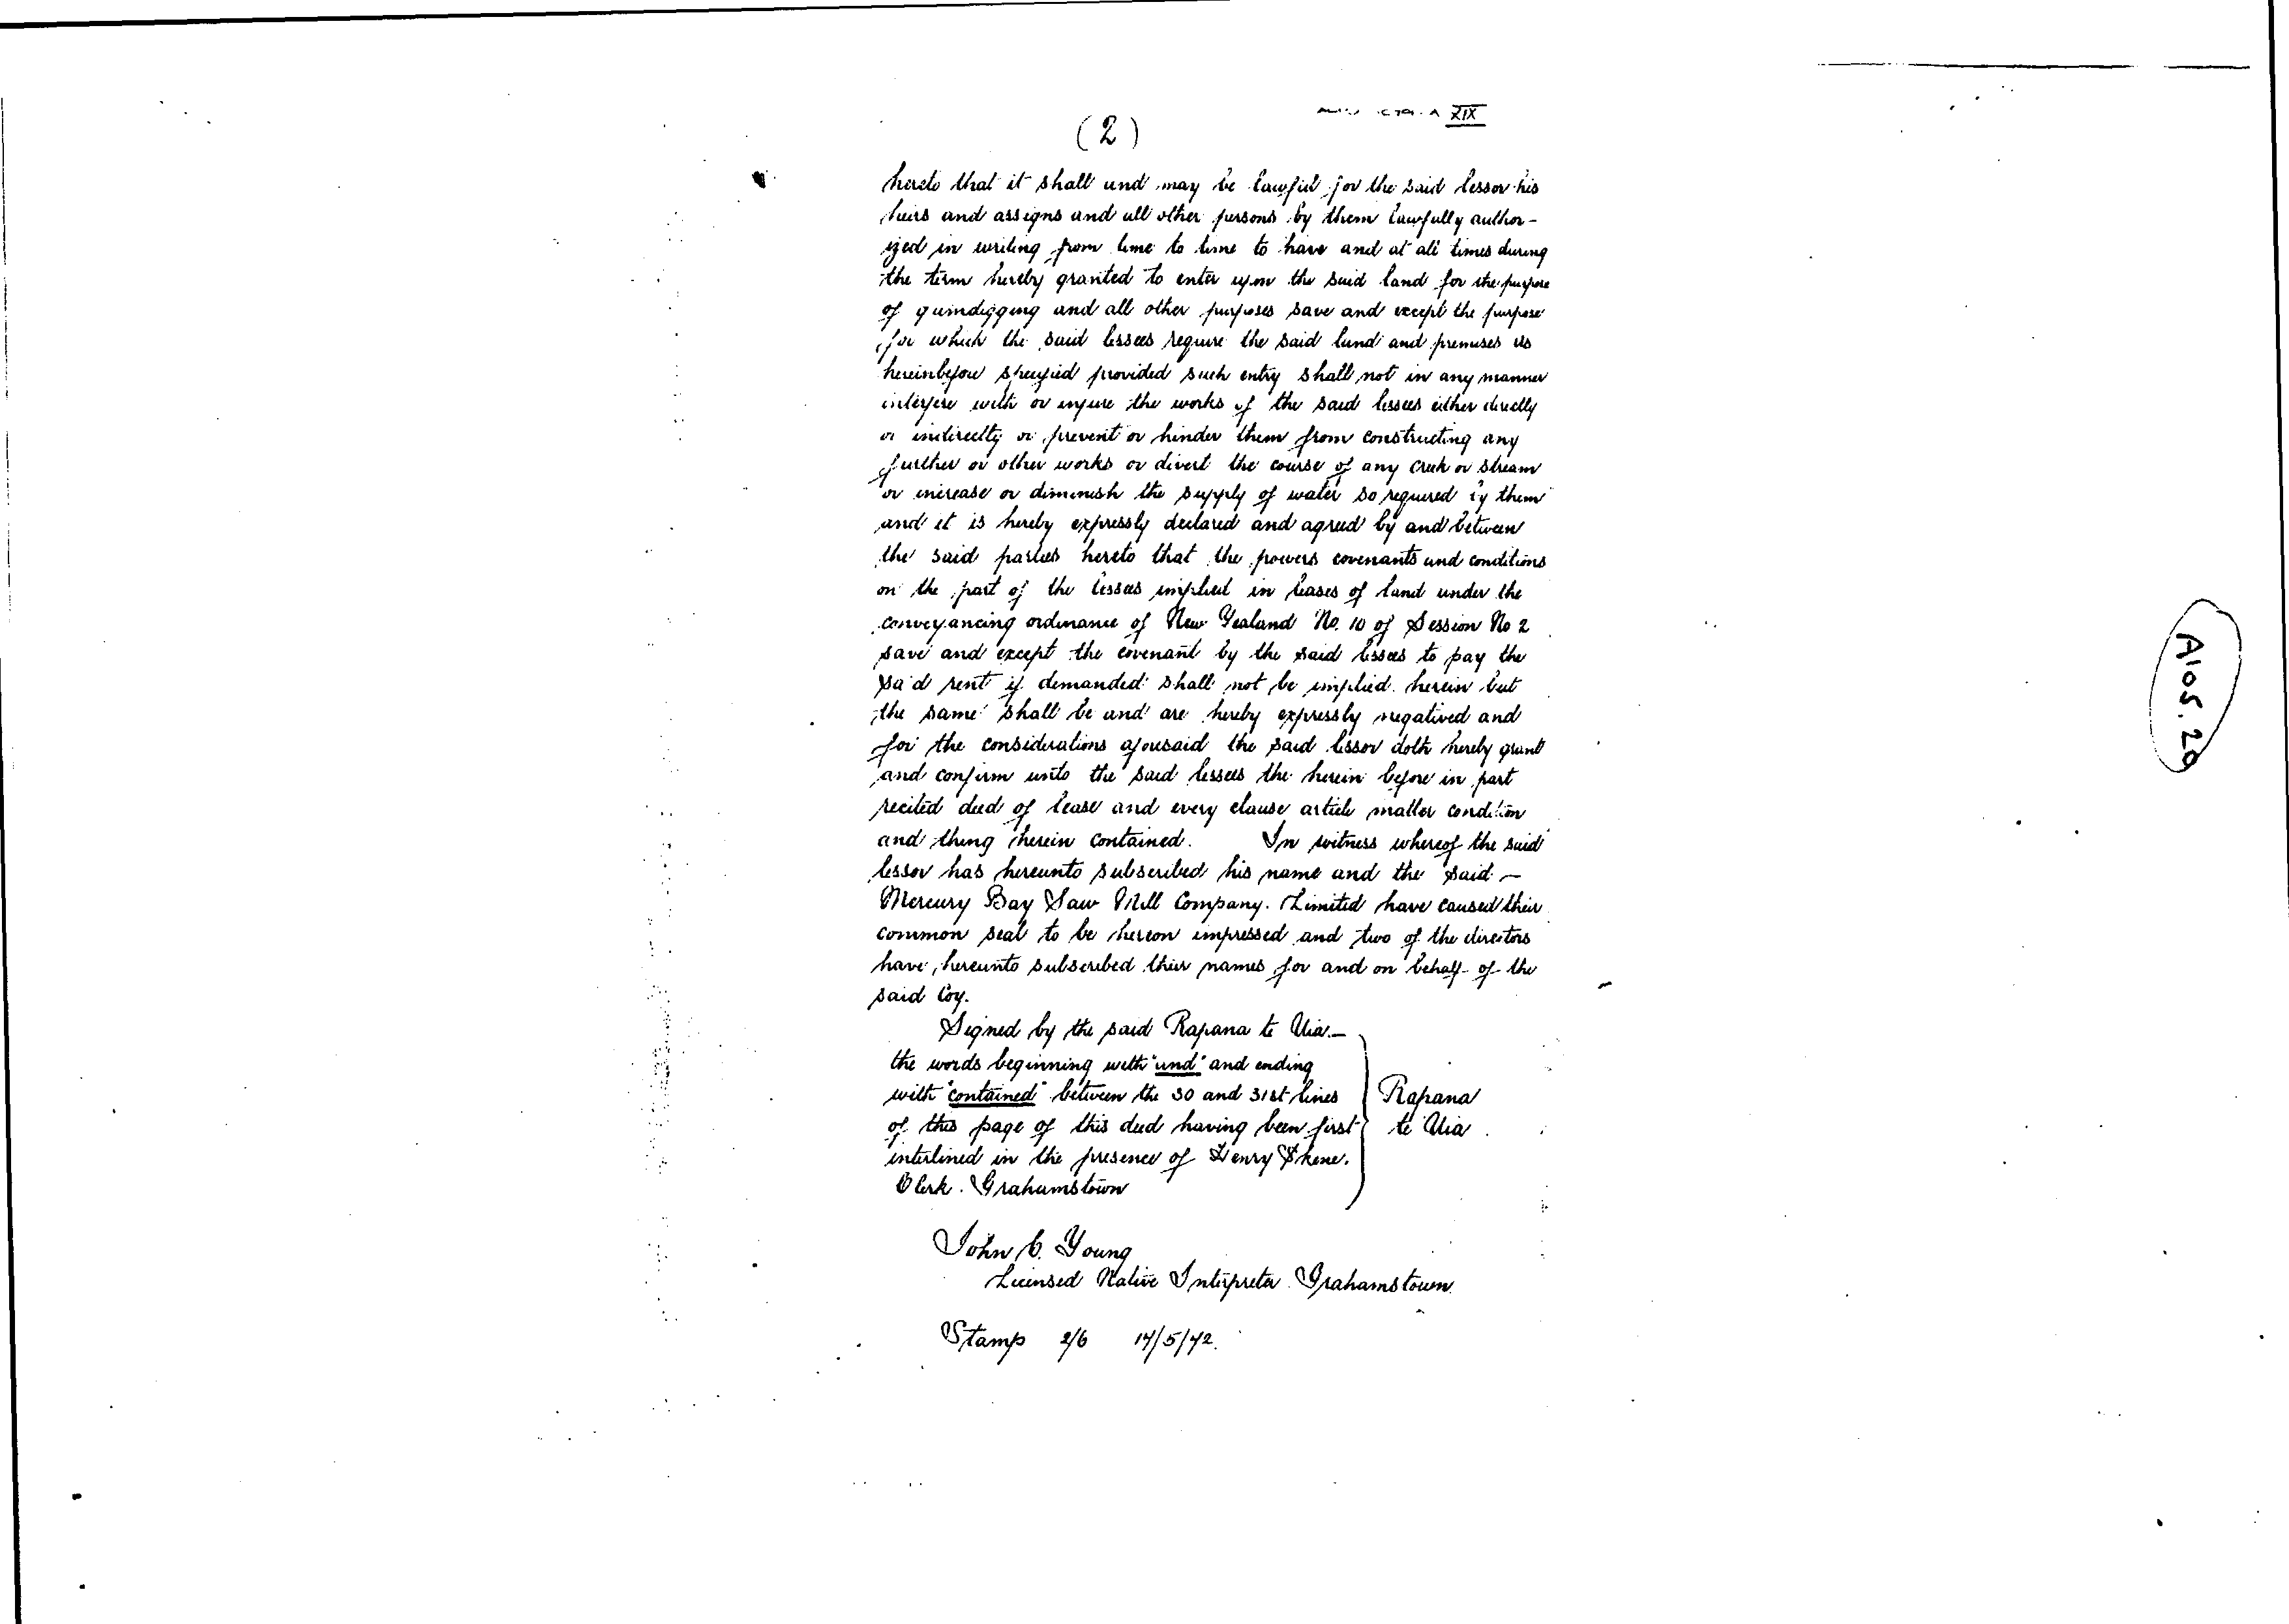 XIX
(2)
hereto that it shall and may be lawful for the said lessor his
heirs and assigns and all other persons by them lawfully author-
ized in writing from time to time to have and at all times during
the term hereby granted to enter upon the said land for the purpose
of gumdigging and all other purposes save and except the purpose
for which the said lessees require the said land and premises as
hereinbefore specified provided such entry shall not in any manner
interfere with or injure the works of the said lessees either directly
or indirectly or prevent or hinder them from constructing any
further or other works or divert the course of any creek or stream
or increase or diminish the supply of water so required by them
and it is hereby expressly declared and agreed by and between
the said parties hereto that the powers covenants and conditions
on the part of the lessees implied in leases of land under the
conveyancing ordinance of New Zealand No. 10 of Session No 2
save and except the covenant by the said lessees to pay the
said rent if demanded shall not be implied herein but
the same shall be and are hereby expressly negatived and
for the considerations aforesaid the said lessor doth hereby grant
and confirm unto the said lessees the herein before in part
recited deed of lease and every clause article matter condition
and thing herein contained. In witness whereof the said
lessor has hereunto subscribed his name and the said -
Mercury Bay Saw Mill Company. Limited have caused their
common seal to be hereon impressed and two of the directors
have hereunto subscribed their names for and on behalf of the
said Coy.
Signed by the said Rapana te Uia.-
the words beginning with "and" and ending
with "contained" between the 30 and 31st lines
of this page of this deed having been first
interlined in the presence of Henry Skene.
Clerk. Grahamstown
Rapana
te Uia
John C. Young
Licensed Native Interpreter Grahamstown.
Stamp 2/6 17/5/72.
A105.29